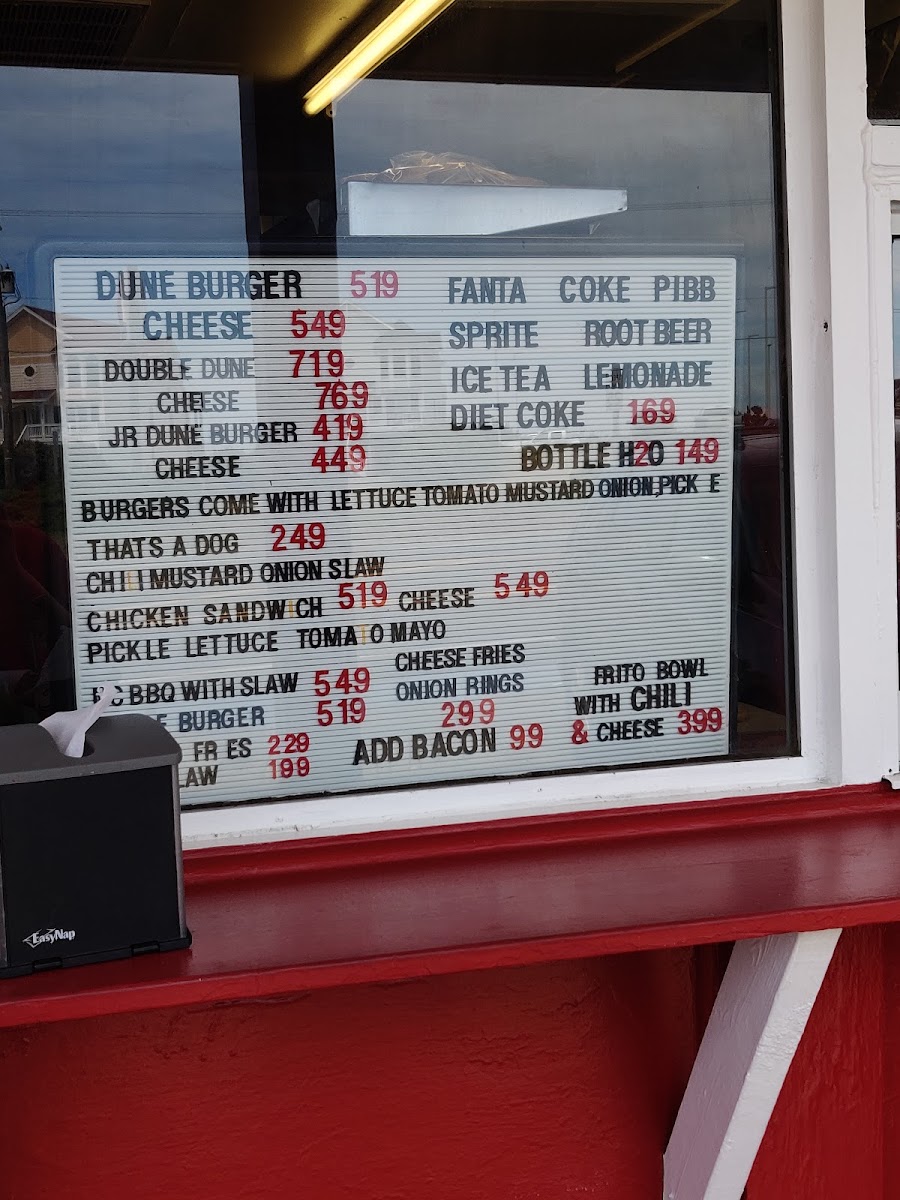 DUNE BURGER 519
CHEESE 549
DOUBLE DUNE 719
CHEESE 769
JR DUNE BURGER 419
CHEESE 449
FANTA COKE PIBB
SPRITE ROOT BEER
ICE TEA LEMONADE
DIET COKE 169
BOTTLE H2O 149
BURGERS COME WITH LETTUCE TOMATO MUSTARD ONION,PICK E
THATS A DOG 249
CHILI MUSTARD ONION SLAW
CHICKEN SANDWICH 519 CHEESE 549
PICKLE LETTUCE TOMATO MAYO
BBQ WITH SLAW 549
E BURGER 519
FR ES 229
LAW 199
CHEESE FRIES
ONION RINGS
299
ADD BACON 99
FRITO BOWL
WITH CHILI
& CHEESE 399
EasyNap